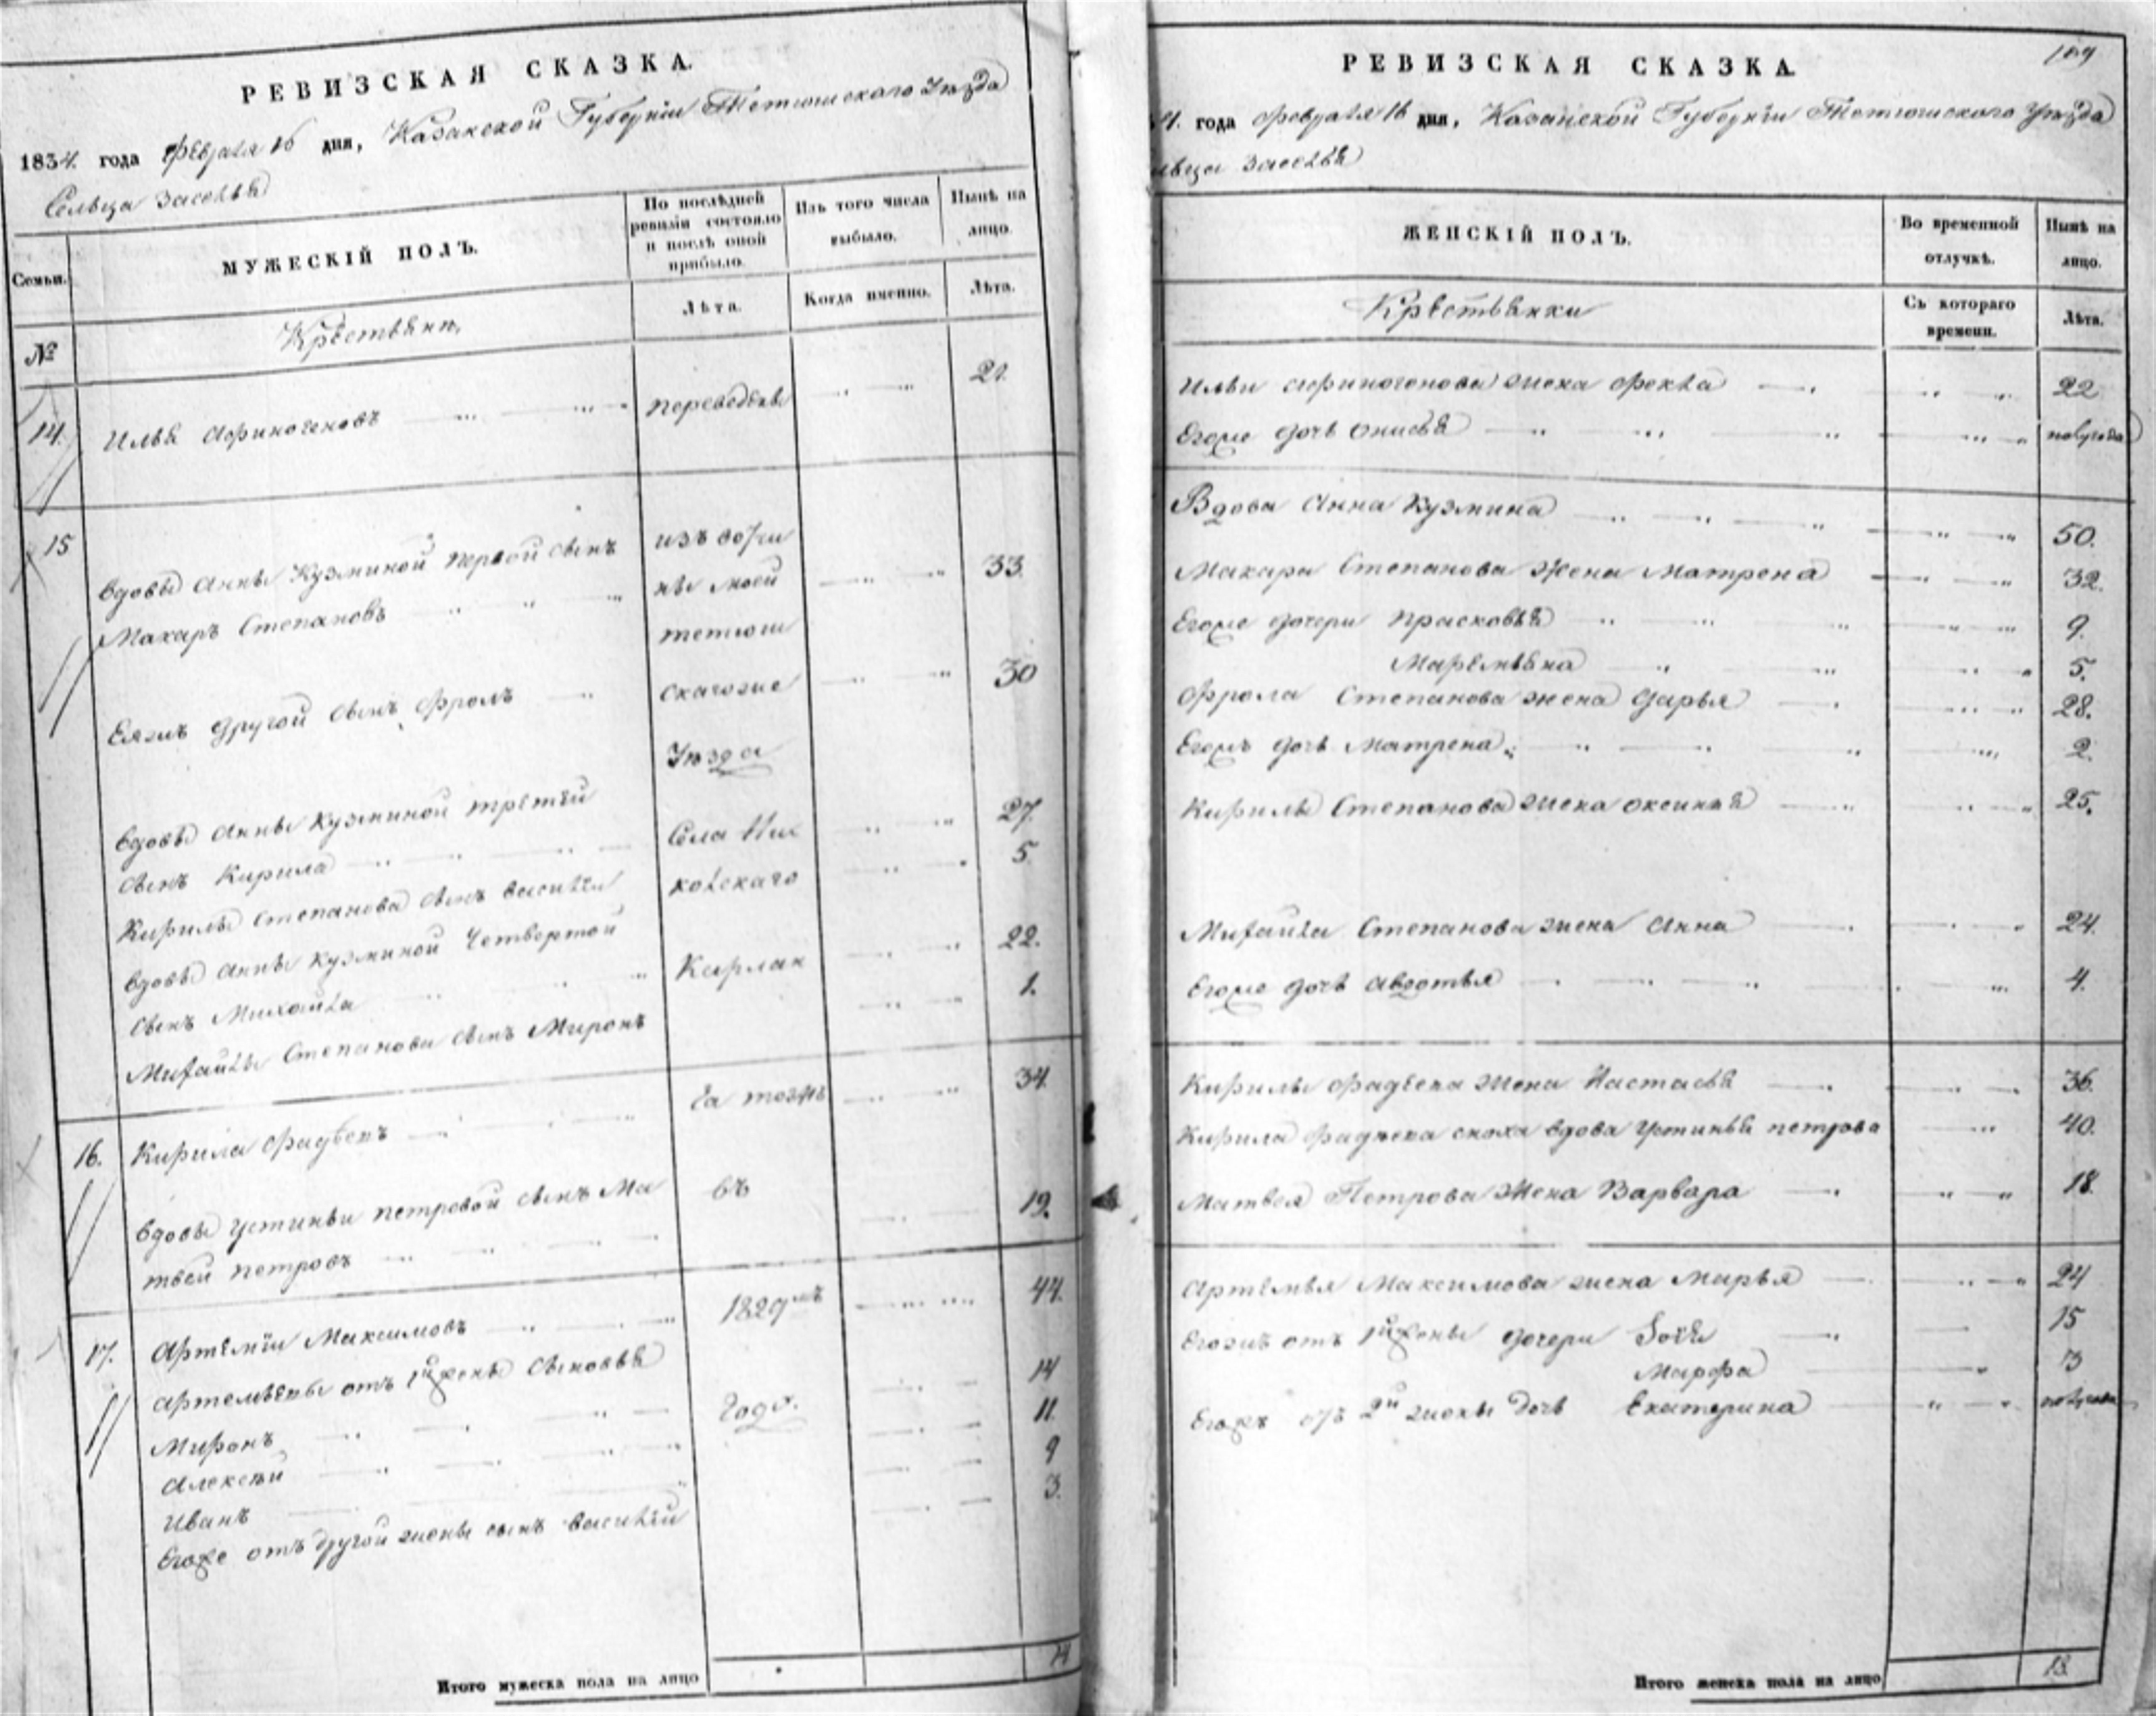 РЕВИЗСКАЯ СКАЗКА.
1834. года Февраля 16 дня, Казанской Губернiи Тетюшскаго Уѣзда
Сельца
Семьи.
МУЖЕСКIЙ ПОЛЪ.
По послѣдней ревизiи состояло и послѣ оной прибыло.
Изъ того числа выбыло.
Нынѣ на лицо.
Лѣта.
Когда именно.
Лѣта.
№
Крестьяне,
14. Илья Афиногеновъ переведены 21.
15 Вдовы Анны Кузминой первой сынъ изъ вотчи
Макаръ Степановъ нѣ моей 33.
тетюш
Еяжъ другой сынъ Фролъ скагоже 30
Уѣзда
Вдовы Анны Кузминой третiй
сынъ Кирила Села Ни 27.
Кирилы Степанова сынъ Василiй кольскаго 5.
Вдовы Анны Кузминой Четвертой
сынъ Михайла Кирлан 22.
Михайлы Степанова сынъ Миронъ 1.
16. Кирила Фадѣевъ тожъ 34.
Вдовы Устиньи Петровой сынъ Ма въ
твей Петровъ 19.
17. Артемiй Максимовъ 1829мъ 44.
Артемьевы от 1й жены сыновья
Миронъ Году. 14
Алексѣй 11.
Иванъ 9
Егоже отъ другой жены сынъ Василiй 3.
Итого мужеска пола на лицо 14
РЕВИЗСКАЯ СКАЗКА.
109
4. года Февраля 16 дня, Казанской Губернiи Тетюшскаго Уѣзда
льца
ЖЕНСКIЙ ПОЛЪ.
Во временной отлучкѣ.
Нынѣ на лицо.
Крестьянки
Съ котораго времени.
Лѣта.
Ильи Афиногенова жена Фекла 22
Егоже дочь Онисья полугода
Вдова Анна Кузмина 50.
Макара Степанова жена Матрена 32.
Егоже дочери Прасковья 9.
Маремьяна 5.
Фрола Степанова жена Дарья 28.
Егожъ дочь Матрена 2.
Кирилы Степанова жена Оксинья 25.
Михайла Степанова жена Анна 24.
Егоже дочь Авдотья 4.
Кирилы Фадѣева жена Настасья 36.
Кирила Фадѣева сноха вдова Устинья Петрова 40.
Матвея Петрова жена Варвара 18.
Артемья Максимова жена Марья 24
Егожъ отъ 1й жены дочери Зоѣя 15
Марфа 3
Егожъ отъ 2й жены дочь Екатерина полугода
Итого женска пола на лицо 18.